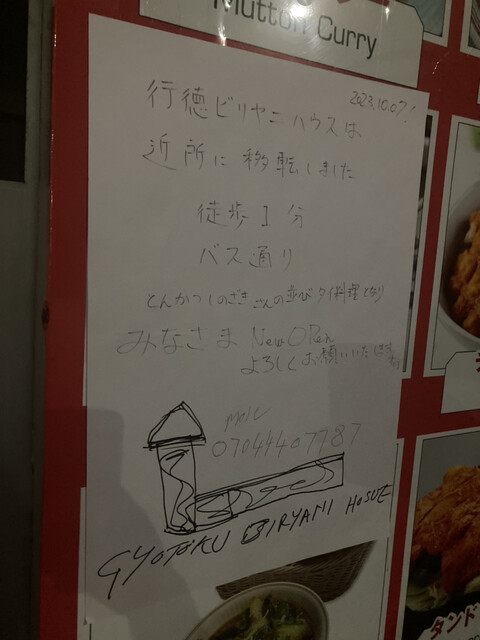 Mutton Curry
2023.10.07
行徳ビリヤニハウスは
近所に移転しました
徒歩1分
バス通り
とんかつしのざきさんの並び タイ料理となり
みなさま New OPen
よろしくお願いいたします
07044407787
GYOTOKU BIRYANI HOSUE
タンド